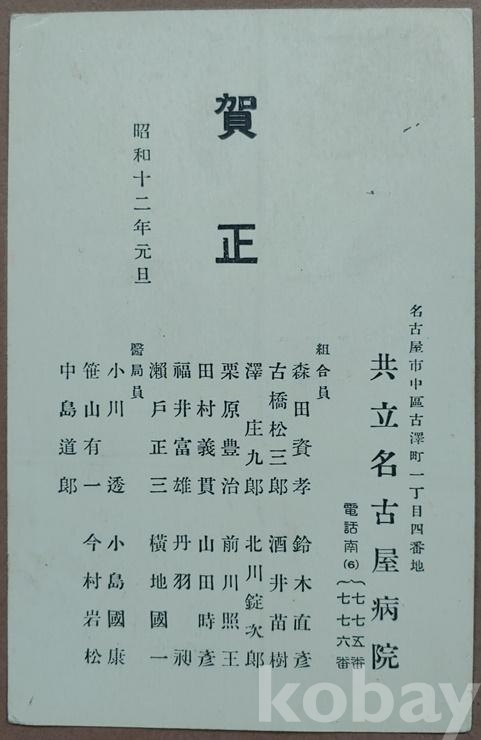 賀正
昭和十二年元旦
名古屋市中區古澤町一丁目四番地
共立名古屋病院
電話南(6)
七七五番
七七六番
組合員
森田資孝 鈴木直彦
古橋松三郎 酒井苗樹
澤庄九郎 北川錠次郎
栗原豊治 前川照王
田村義貫 山田時彦
福井富雄 丹羽昶
瀬戸正三 横地國一
醫局員
小川透 小島國康
笹山有一 今村岩松
中島道郎
kobay